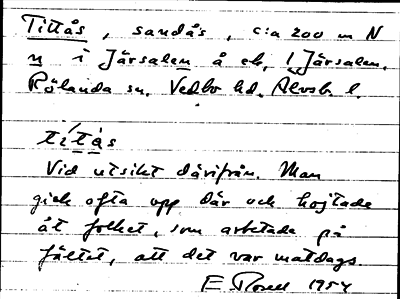 Tittås, sandås, c:a 200 m N
i Järsalen å ek. 1 Järsalen,
Rölanda sn. Vedbo hd. Älvsb. l.
títås
Vid utsikt därifrån. Man
gick ofta upp där och hojtade
åt folket, som arbetade på
fältet, att det var matdags
E 1954